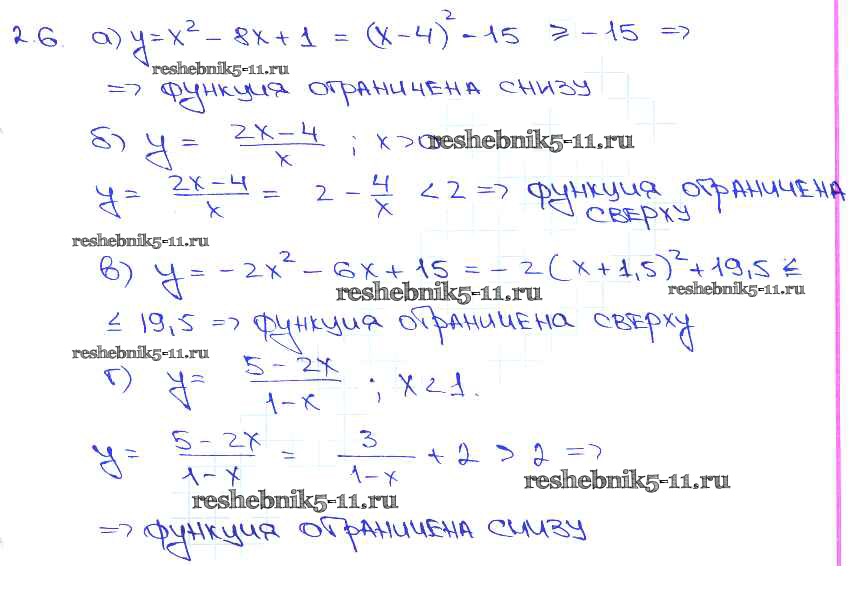 2.6. а) y = x² - 8x + 1 = (x - 4)² - 15 ≥ -15 =>
reshebnik5-11.ru
=> функция ограничена снизу
б) y = (2x - 4)/x ; x > 0 reshebnik5-11.ru
y = (2x - 4)/x = 2 - 4/x < 2 => функция ограничена
сверху
reshebnik5-11.ru
в) y = -2x² - 6x + 15 = -2(x + 1,5)² + 19,5 ≤
reshebnik5-11.ru reshebnik5-11.ru
≤ 19,5 => функция ограничена сверху
reshebnik5-11.ru
г) y = (5 - 2x)/(1 - x) ; x < 1.
y = (5 - 2x)/(1 - x) = 3/(1 - x) + 2 > 2 =>
reshebnik5-11.ru reshebnik5-11.ru
=> функция ограничена снизу